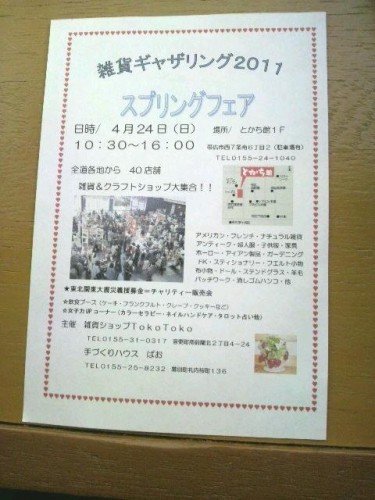 雑貨ギャザリング2011
スプリングフェア
日時/ 4月24日(日) 場所/ とかち館1F
10:30～16:00 帯広市西7条南6丁目2(駐車場有)
TEL0155-24-1040
全道各地から 40店舗
雑貨&クラフトショップ大集合!!
とかち館
アメリカン・フレンチ・ナチュラル雑貨
アンティーク・婦人服・子供服・家具
ホーロー・アイアン製品・ガーデニング
FK・ステイショナリー・フエルト小物
布小物・ドール・ステンドグラス・羊毛
パッチワーク・消しゴムハンコ・他
★東北関東大震災義援募金=チャリティー販売会
☆飲食ブース(ケーキ・フランクフルト・クレープ・クッキーなど)
☆女子力UPコーナー(カラーセラピー・ネイルハンドケア・タロット占い他)
主催 雑貨ショップTokoToko
TEL0155-31-0317 音更町南鈴蘭北2丁目4-24
手づくりハウス ぱお
TEL0155-25-8232 幕別町札内桜町136